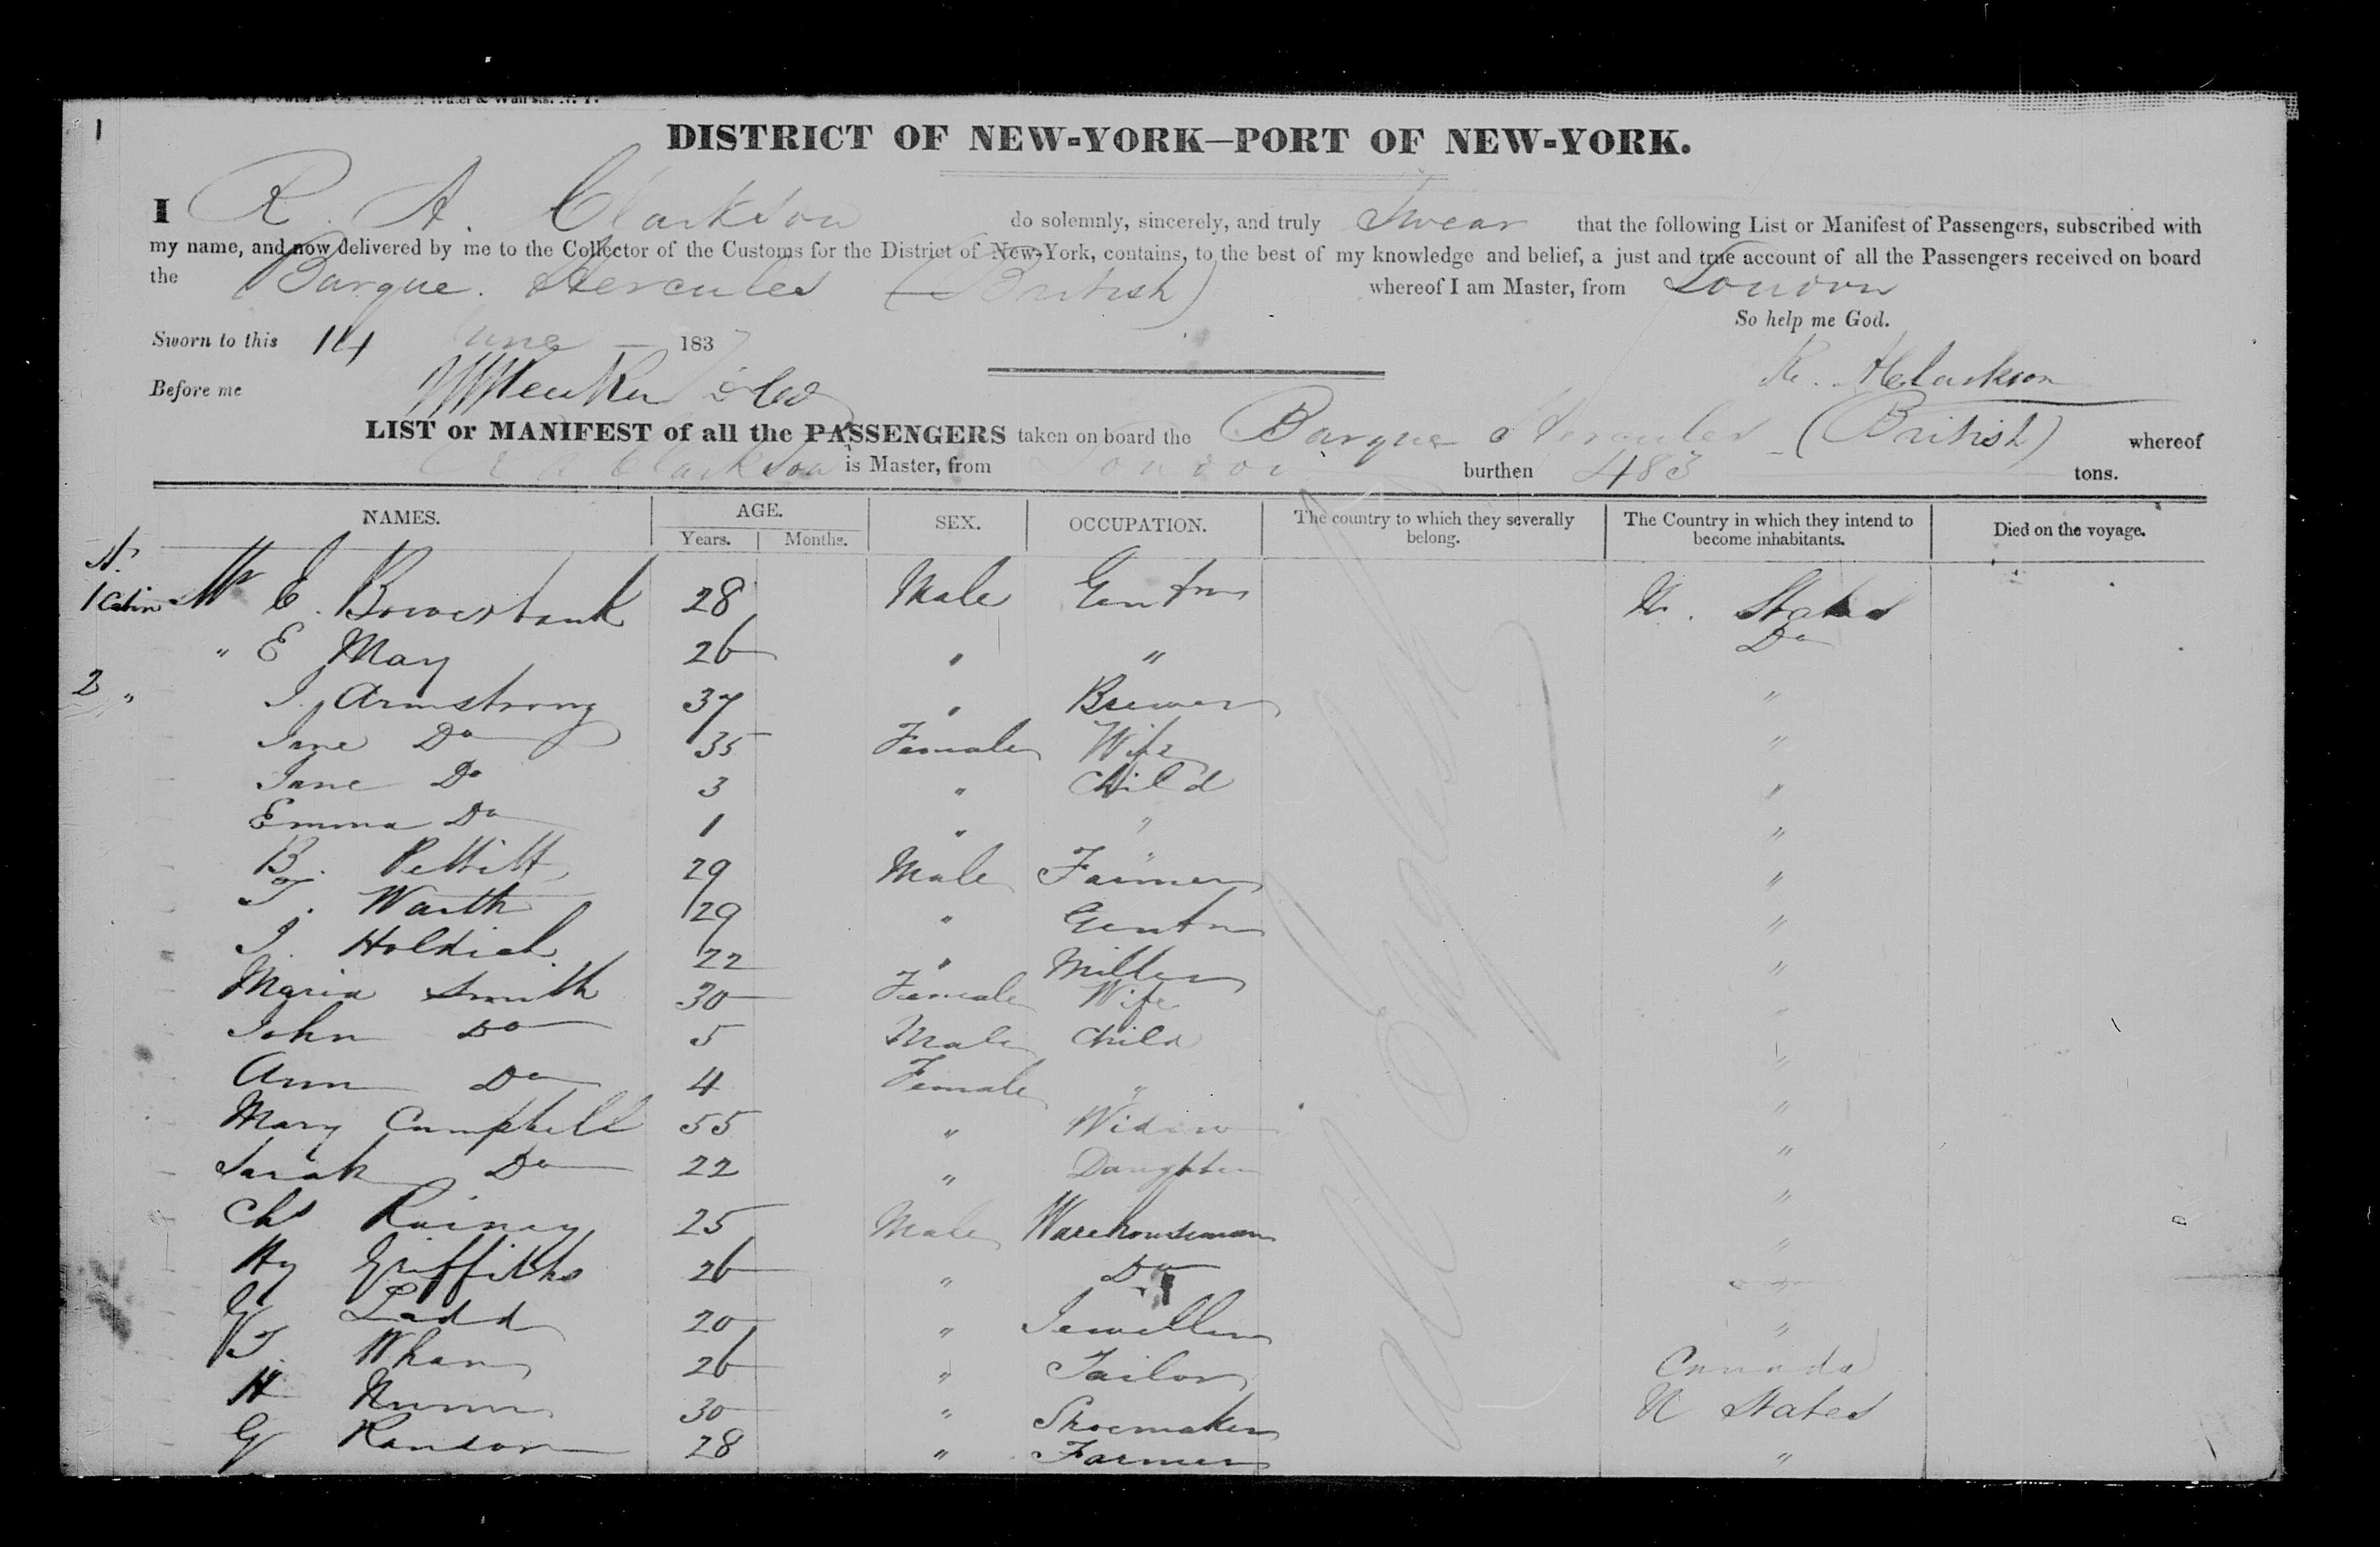 1
DISTRICT OF NEW-YORK—PORT OF NEW-YORK.
I R. A. Clarkson do solemnly, sincerely, and truly Swear that the following List or Manifest of Passengers, subscribed with
my name, and now delivered by me to the Collector of the Customs for the District of New-York, contains, to the best of my knowledge and belief, a just and true account of all the Passengers received on board
the Barque. Hercules (British) whereof I am Master, from London
So help me God.
Sworn to this 14 June 1837
R. A Clarkson
Before me
LIST or MANIFEST of all the PASSENGERS taken on board the Barque Hercules (British) whereof
R A Clarkson is Master, from London burthen 483 tons.
NAMES. AGE. SEX. OCCUPATION. The country to which they severally belong. The Country in which they intend to become inhabitants. Died on the voyage.
Years. Months.
1 Cabin Mr E. Bowerbank 28 Male Gentn U. States
" E May 26 " " Do
2 " J. Armstrong 37 " Brewer "
Jane Do 35 Female Wife "
Jane Do 3 " Child "
Emma Do 1 " " "
B. Pettitt 29 Male Farmer "
T. Warth 29 " Gentn "
J. Holdich 22 " Miller "
Maria Smith 30 Female Wife "
John Do 5 Male Child "
Ann Do 4 Female " "
Mary Campbell 55 " Widow "
Sarah Do 22 " Daughter "
Chs Rainey 25 Male Warehouseman "
Hy Griffiths 26 " Do "
G Ladd 20 " Jeweller "
T. Wham 26 " Tailor Canada
H Nunn 30 " Shoemaker U States
G Ransom 28 " Farmer "
All English